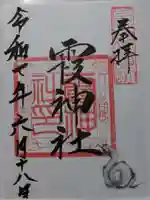 奉拝
霞神社
令和七年六月十八日